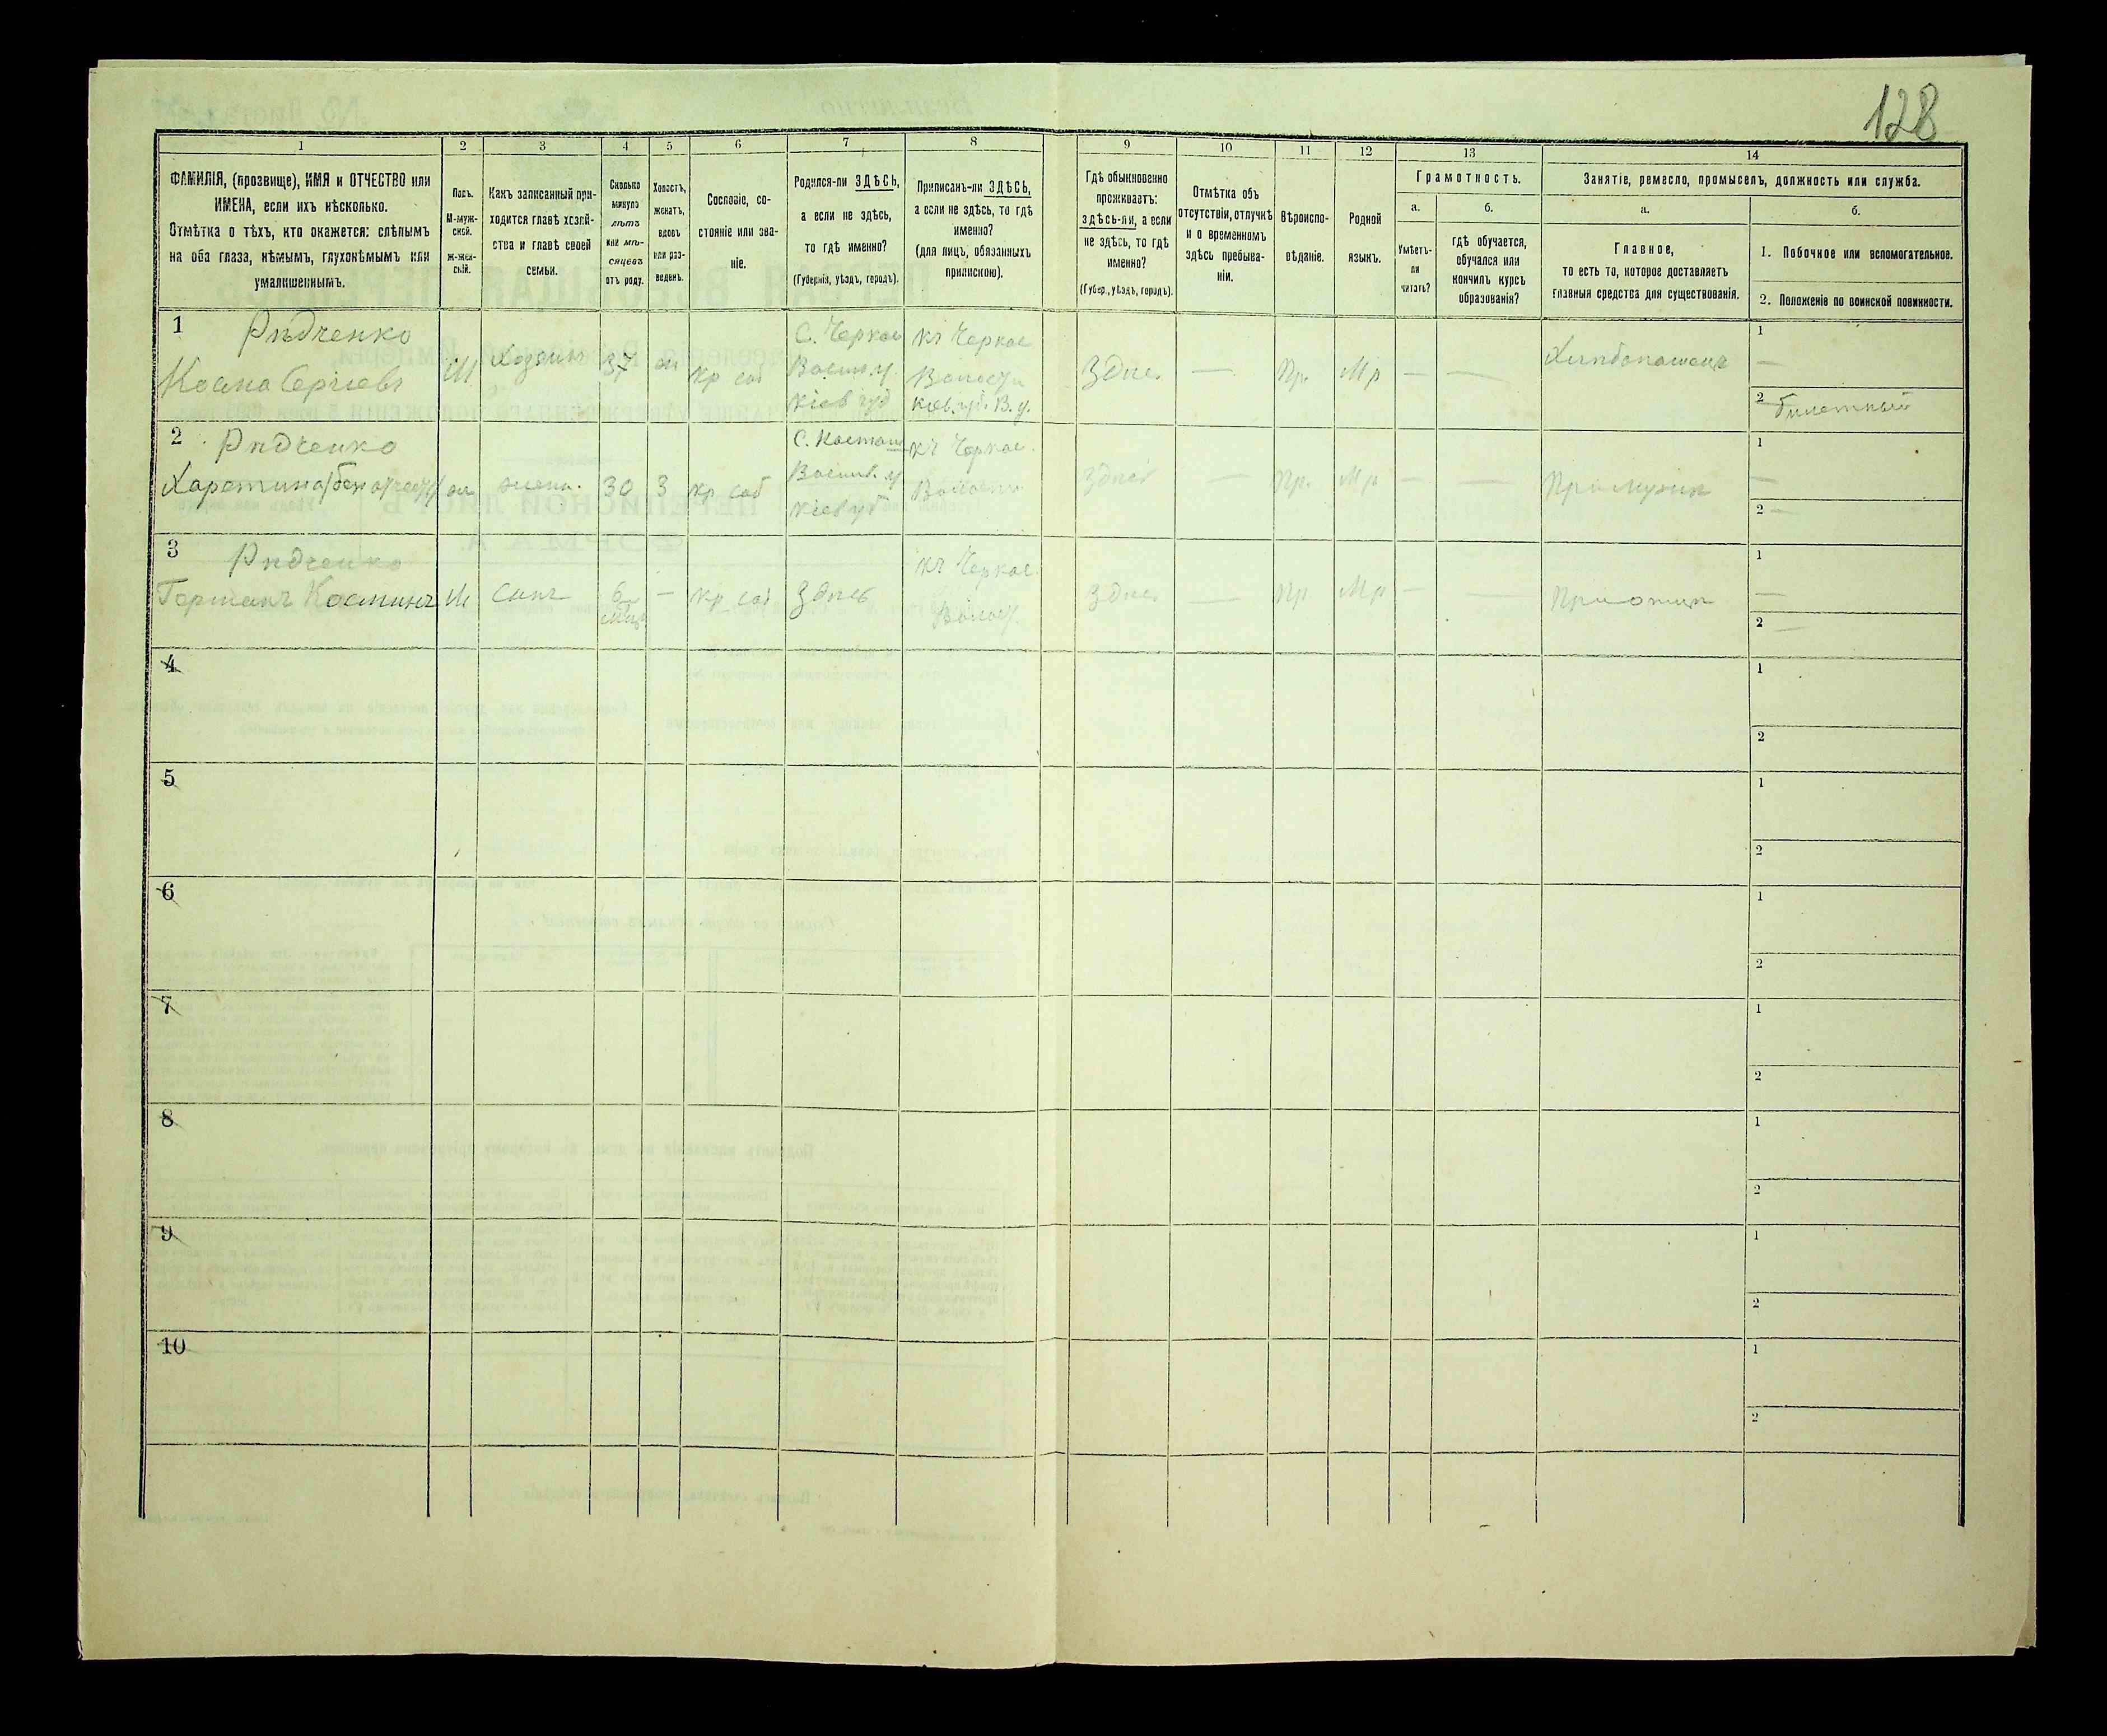 128
1
2
3
4
5
6
7
8
9
10
11
12
13
14
ФАМИЛІЯ, (прозвище), ИМЯ и ОТЧЕСТВО или
ИМЕНА, если ихъ нѣсколько.
Отмѣтка о тѣхъ, кто окажется: слѣпымъ
на оба глаза, нѣмымъ, глухонѣмымъ или
умалишеннымъ.
Полъ.
М-муж-
ской.
Ж-жен-
скій.
Какъ записанный при-
ходится главѣ хозяй-
ства и главѣ своей
семьи.
Сколько
минуло
лѣтъ
или мѣ-
сяцевъ
отъ роду.
Холостъ,
женатъ,
вдовъ
или раз-
веденъ.
Сословіе, со-
стояніе или зва-
ніе.
Родился-ли ЗДѢСЬ,
а если не здѣсь,
то гдѣ именно?
(Губернія, уѣздъ, городъ).
Приписанъ-ли ЗДѢСЬ,
а если не здѣсь, то гдѣ
именно?
(для лицъ, обязанныхъ
припискою).
Гдѣ обыкновенно
проживаетъ:
здѣсь-ли, а если
не здѣсь, то гдѣ
именно?
(Губер., уѣздъ, городъ).
Отмѣтка объ
отсутствіи, отлучкѣ
и о временномъ
здѣсь пребыва-
ніи.
Вѣроиспо-
вѣданіе.
Родной
языкъ.
Грамотность.
а.
Умѣетъ-
ли
читать?
б.
гдѣ обучается,
обучался или
кончилъ курсъ
образованія?
Занятіе, ремесло, промыселъ, должность или служба.
а.
Главное,
то есть то, которое доставляетъ
главныя средства для существованія.
б.
1. Побочное или вспомогательное.
2. Положеніе по воинской повинности.
1
Рѣдченко
Косма Сергіевъ
М
Хозяинъ
37
кр соб
С. Черкас
Васильк. у.
Кіев губ
къ Черкас
Волости
Кіев. губ. В. у.
Здѣсь
—
Пр.
Мр
—
—
Хлѣбопашецъ
1
—
2
билетный
2
Рѣдченко
жена.
30
3
кр соб
Васильк. у
Кіев губ
къ Черкас.
Волости
Здѣсь
—
Пр.
Мр
—
—
При мужѣ
1
—
2 —
3
Рѣдченко
Германъ Косминъ
М
Сынъ
6
мѣс
—
кр соб
Здѣсь
къ Черкас.
Волост.
Здѣсь
—
Пр
Мр
—
—
При отцѣ
1
—
2
—
4
1
2
5
1
2
6
1
2
7
1
2
8
1
2
9
1
2
10
1
2